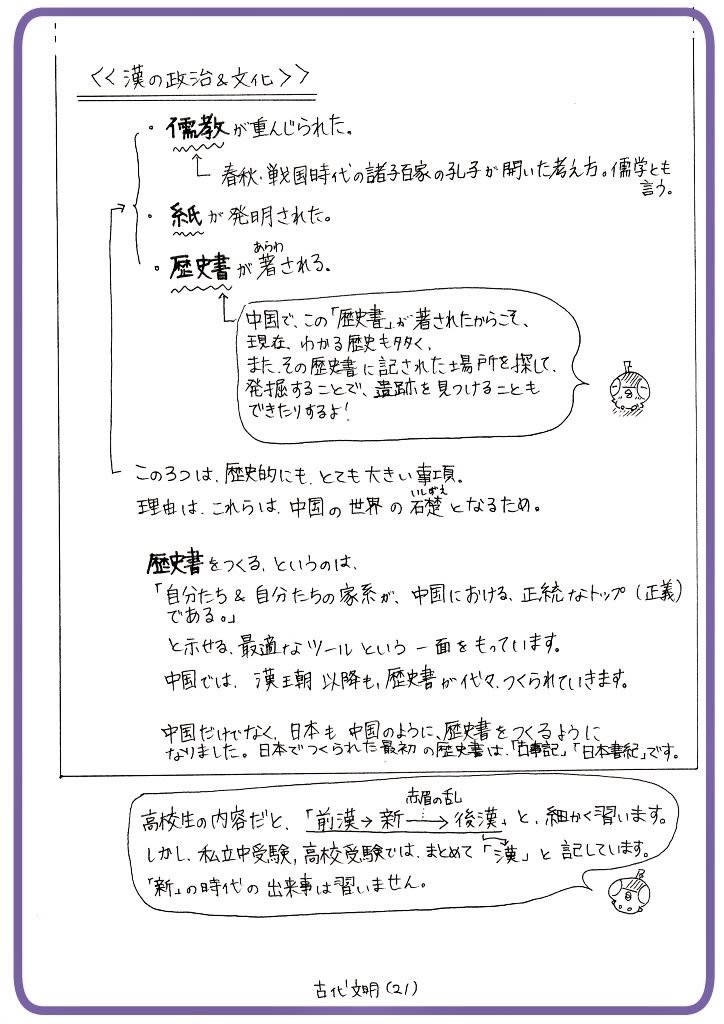 <<漢の政治&文化>>
・儒教が重んじられた。
春秋・戦国時代の諸子百家の孔子が開いた考え方。儒学とも
言う。
・紙が発明された。
あらわ
・歴史書が著される。
中国で、この「歴史書」が著されたからこそ、
現在、わかる歴史も多く、
また、その歴史書に記された場所を探して、
発掘することで、遺跡を見つけることも
できたりするよ!
この3つは、歴史的にも、とても大きい事項。
いしずえ
理由は、これらは、中国の世界の石楚となるため。
歴史書をつくる、というのは、
「自分たち&自分たちの家系が、中国における、正統なトップ(正義)
である。」
と示せる、最適なツールという一面をもっています。
中国では、漢王朝以降も、歴史書が代々、つくられていきます。
中国だけでなく、日本も中国のように、歴史書をつくるように
なりました。日本でつくられた最初の歴史書は、「古事記」「日本書紀」です。
赤眉の乱
高校生の内容だと、「前漢→新→後漢」と、細かく習います。
しかし、私立中受験,高校受験では、まとめて「漢」と記しています。
「新」の時代の出来事は習いません。
古代文明(21)